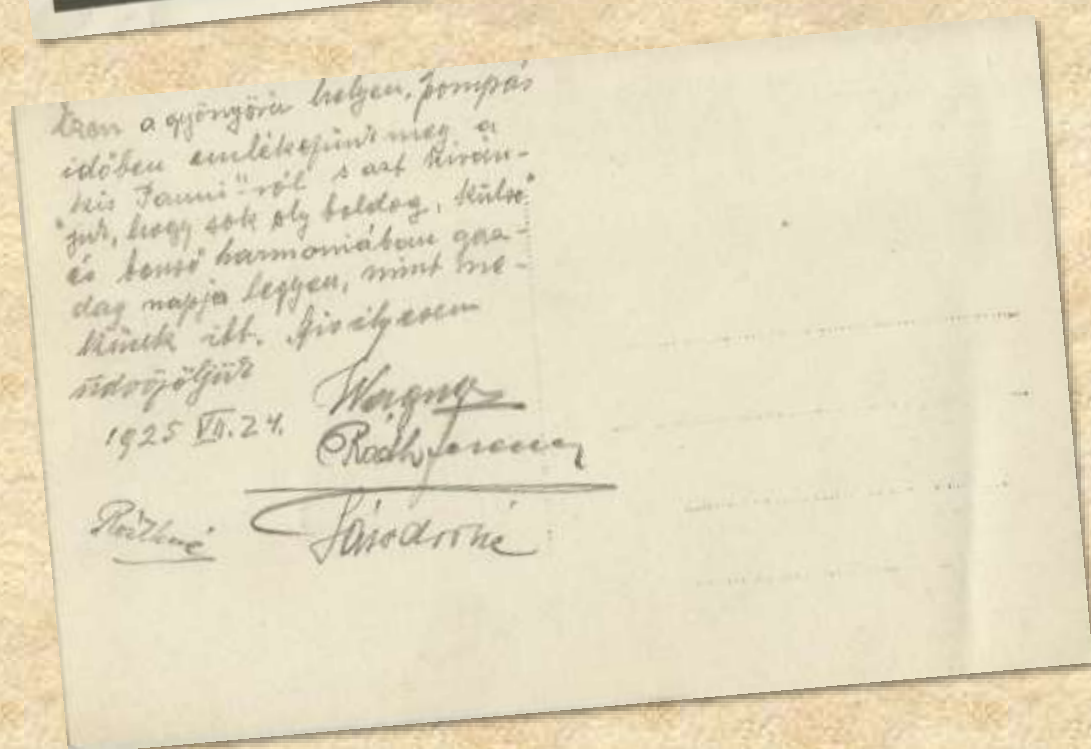 Ezen a gyönyörü helyen, pompás
időben emlékezünk meg a
"kis Fanni"-ról s azt kiván-
juk, hogy sok oly boldog, külső
és benső harmoniában gaz-
dag napja legyen, mint ne-
künk itt. Szivélyesen
üdvözöljük
1925 VII. 24.
Wagner
Róth Ferenc
Róthné